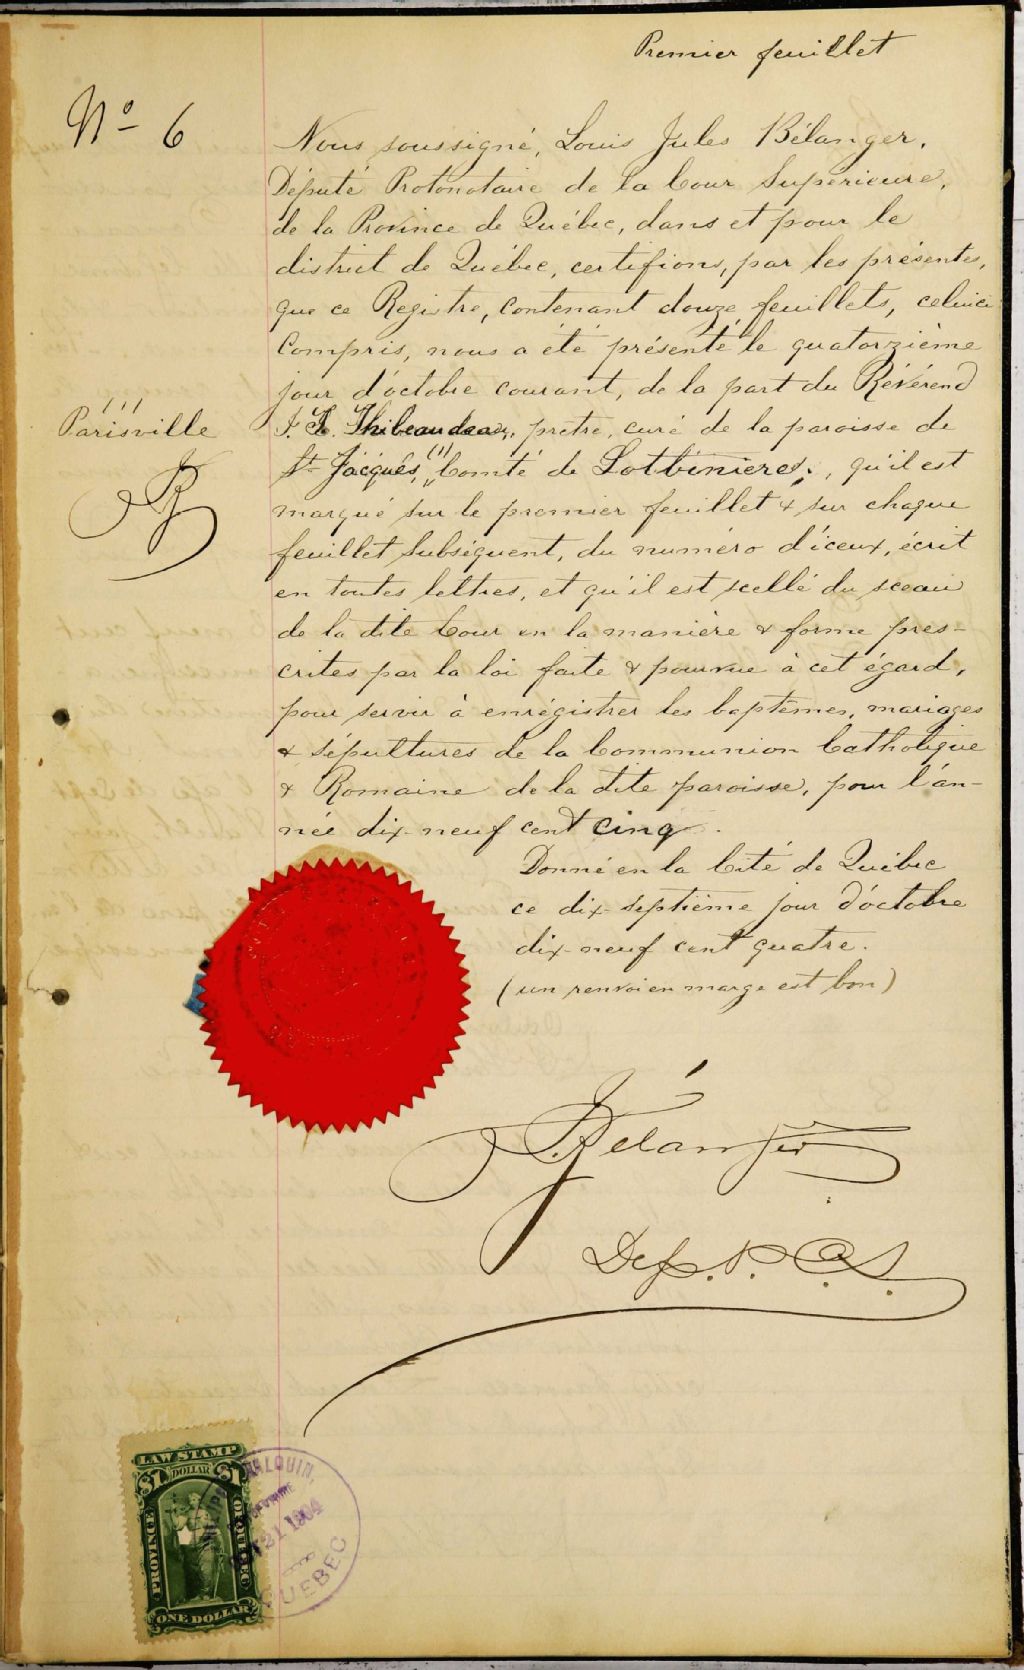 Premier feuillet
No 6
Nous soussigné, Louis Jules Bélanger,
Député Protonotaire de la Cour Supérieure,
de la Province de Québec, dans et pour le
district de Québec, certifions, par les présentes,
que ce Registre, contenant douze feuillets, celui-ci
Compris, nous a été présenté le quatorzième
jour d'octobre courant, de la part du Révérend
Parisville
Thibeaudeau, prêtre, curé de la paroisse de
St Jacques, Comté de Lotbinière, qu'il est
marqué sur le premier feuillet & sur chaque
feuillet Subséquent, du numéro d'iceux, écrit
en toutes lettres, et qu'il est scellé du sceau
de la dite Cour en la manière & forme pres-
crites par la loi faite & pourvue à cet égard,
pour servir à enrégistrer les baptêmes, mariages
& sépultures de la Communion Catholique
& Romaine de la dite paroisse, pour l'an-
née dix-neuf cent cinq.
Donné en la Cité de Québec
ce dix-septième jour d'octobre
dix-neuf cent quatre.
(un renvoi en marge est bon)
Bélanger
Dep. P. C. S.
LAW STAMP
$1 DOLLAR $1
PROVINCE
QUEBEC
ONE DOLLAR
MALOUIN,
21 1904
QUEBEC